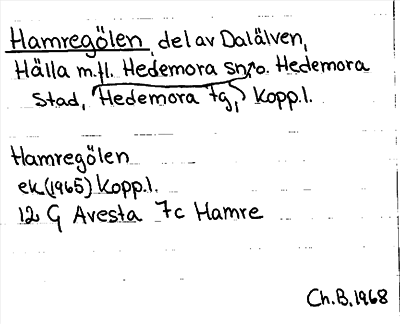 Hamregölen, del av Dalälven,
Hälla m.fl. Hedemora sn, o. Hedemora
stad, Hedemora tg, Kopp.l.
Hamregölen
ek (1965) Kopp.l.
12 G Avesta 7c Hamre
Ch.B. 1968